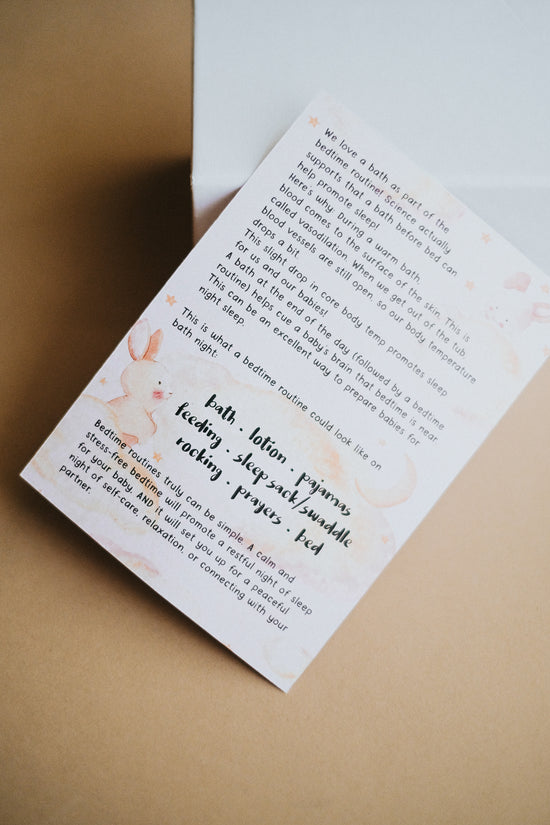 We love a bath as part of the
bedtime routine! Science actually
supports that a bath before bed can
help promote sleep!
Here's why: During a warm bath,
blood comes to the surface of the skin. This is
called vasodilation. When we get out of the tub
blood vessels are still open, so our body temperature
drops a bit.
This slight drop in core body temp promotes sleep
for us and our babies!
A bath at the end of the day (followed by a bedtime
routine) helps cue a baby's brain that bedtime is near.
This can be an excellent way to prepare babies for
night sleep.
This is what a bedtime routine could look like on
bath night:
bath . lotion . pajamas
feeding . sleep sack/swaddle
rocking . prayers . bed
Bedtime routines truly can be simple. A calm and
stress-free bedtime will promote a restful night of sleep
for your baby, AND it will set you up for a peaceful
night of self-care, relaxation, or connecting with your
partner.